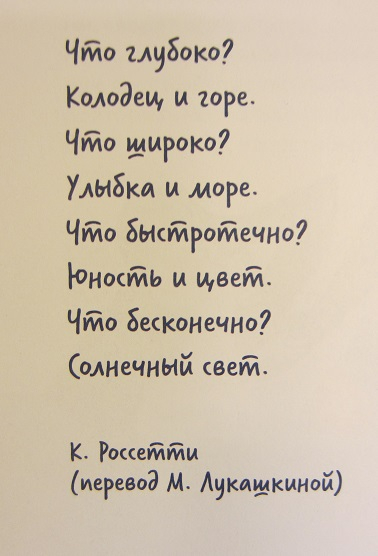 Что глубоко?
Колодец и горе.
Что широко?
Улыбка и море.
Что быстротечно?
Юность и цвет.
Что бесконечно?
Солнечный свет.
К. Россетти
(перевод М. Лукашкиной)